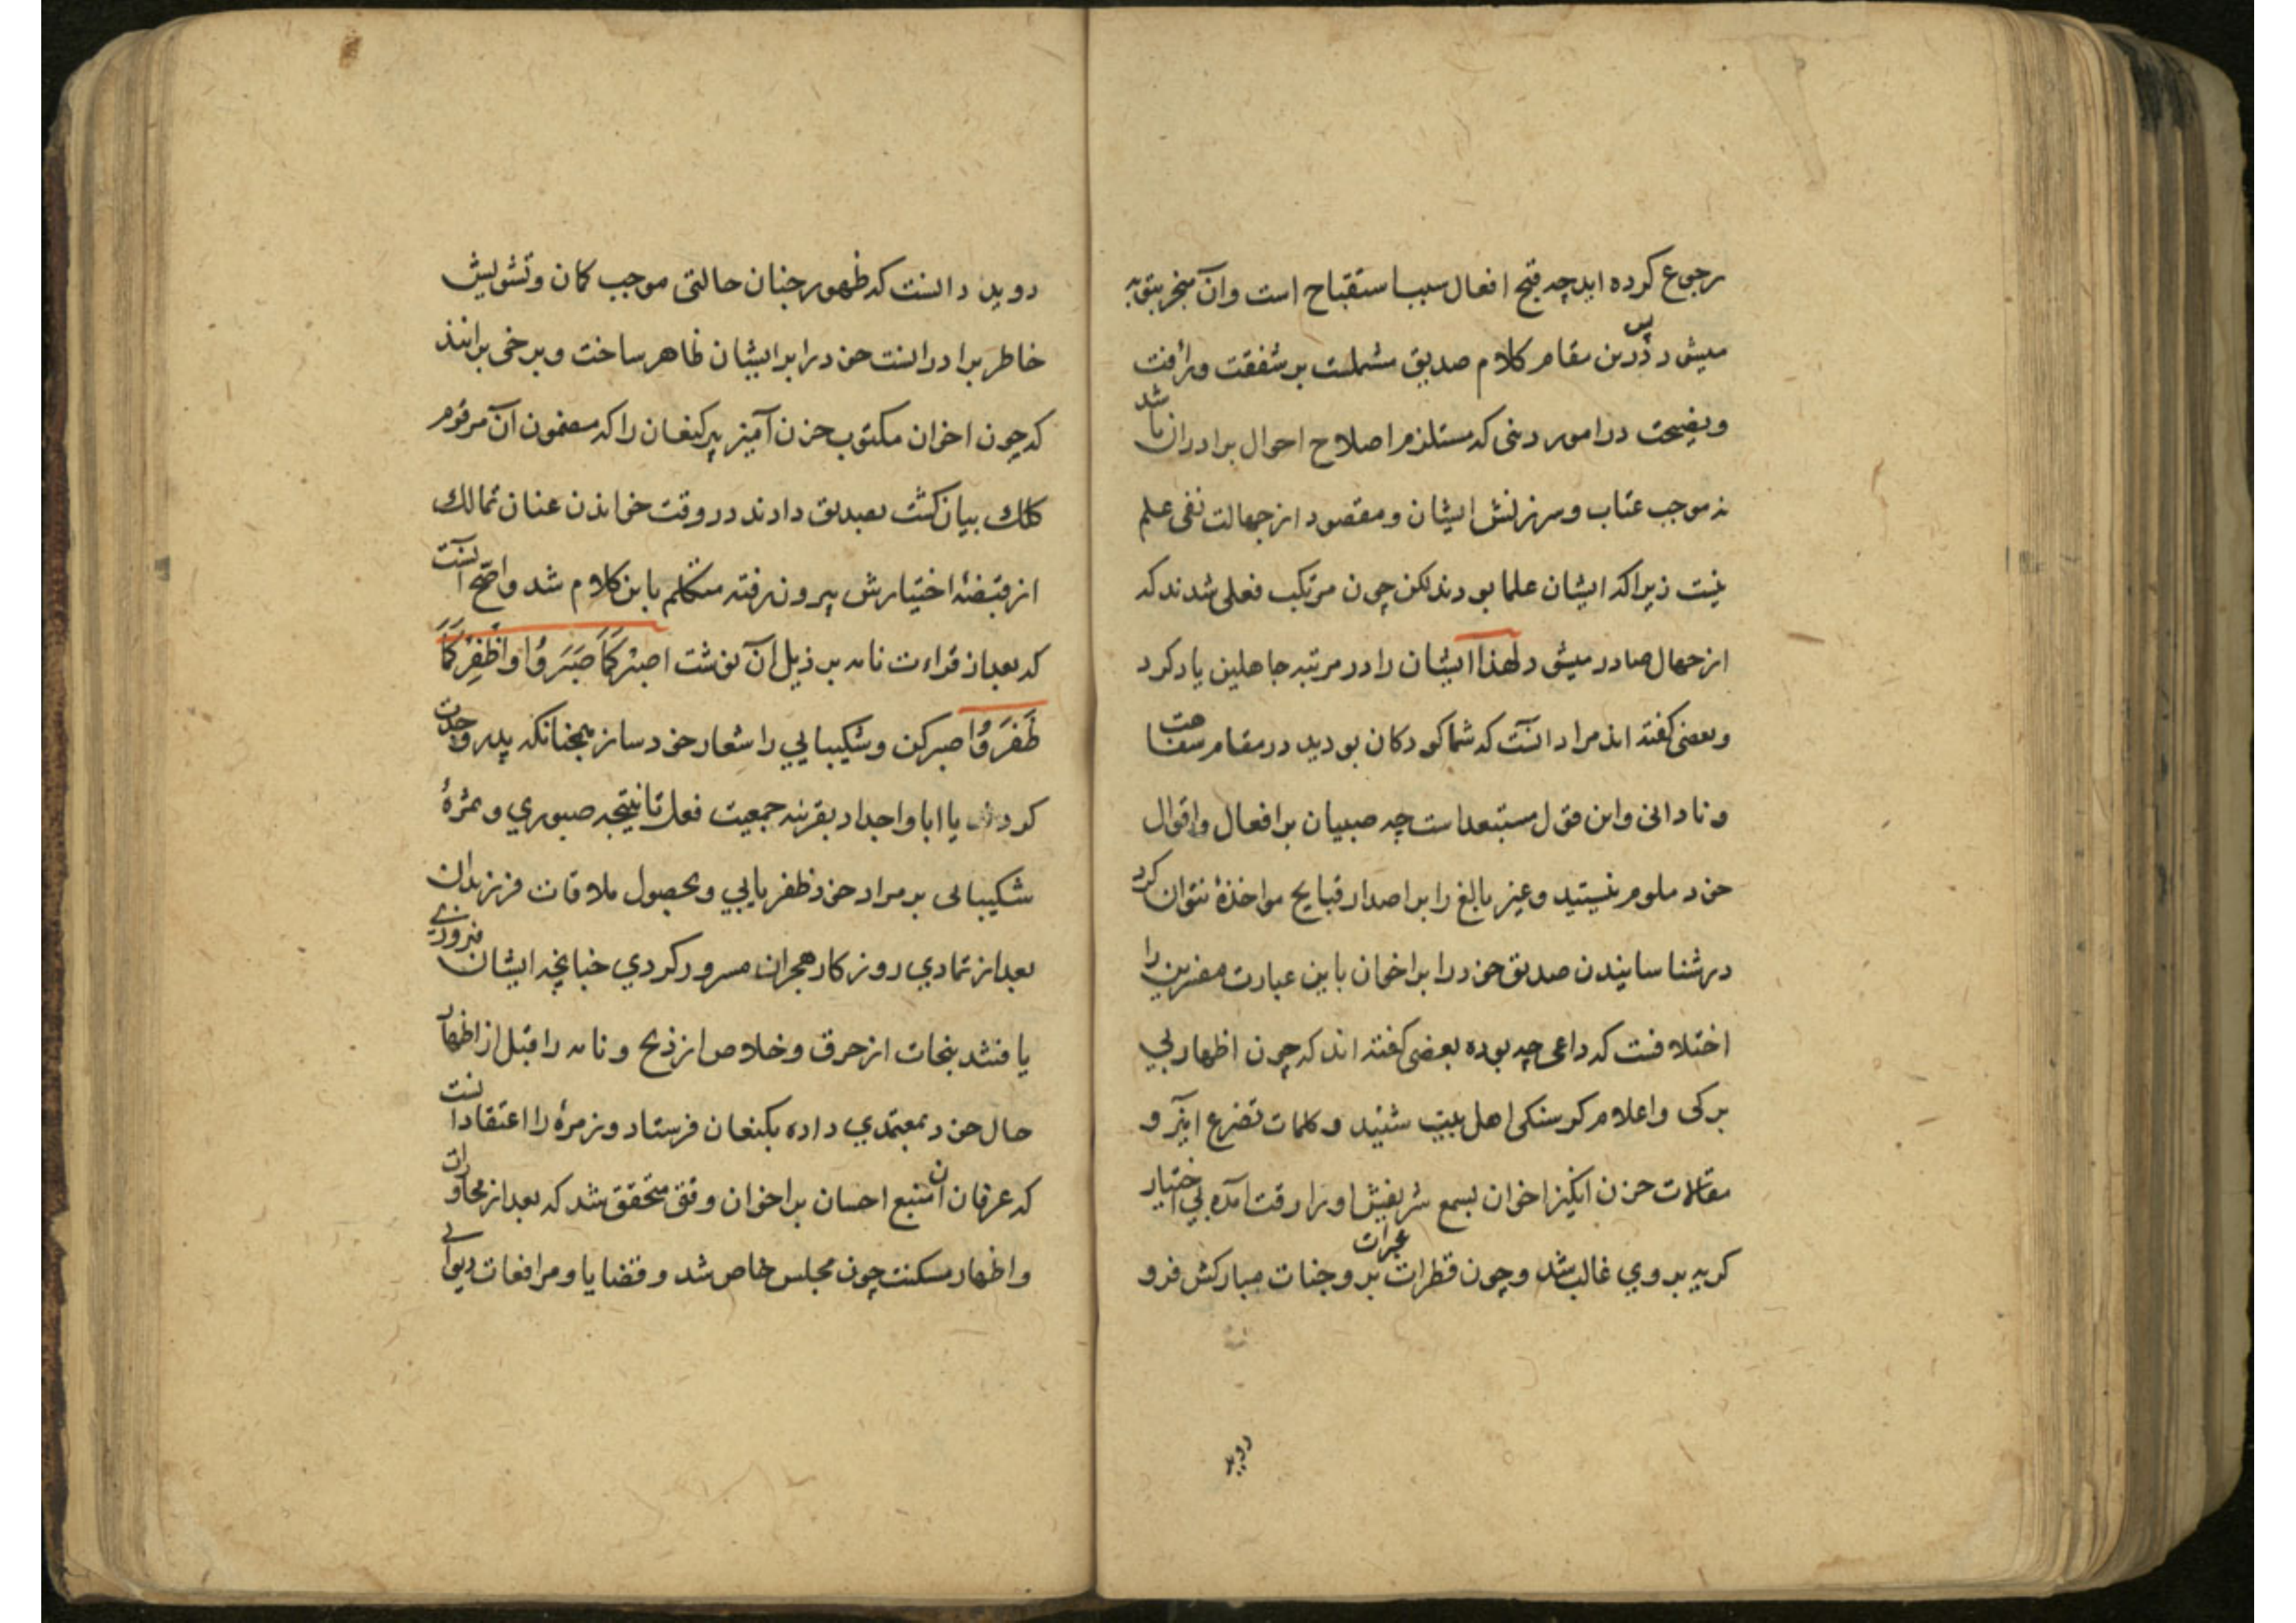 رجوع کرده اید چه قبح افعال سبب استقباح است وآن منجر بتوبه
میشود پس درین مقام کلام صدیق مشملست بر شفقت ورأفت
ونصیحت در امور دینی که مستلزم اصلاح احوال برادران باشد
نه موجب عتاب وسرزنش ایشان ومقصود از جهالت نفی علم
نیست زیرا که ایشان علما بودند لکن چون مرتکب فعلی شدند که
از جهال صادر میشود لهذا ایشان را در مرتبه جاهلین یاد کرد
وبعضی کفته اند مراد آنست که شما کودکان بودید در مقام سفاهت
ونادانی واین قول مستبعد است چه صبیان بر افعال واقوال
خود ملوم نیستید وغیر بالغ را بر اصدار قبایح مواخذهٔ نتوان کرد
در شناسانیدن صدیق خود را بر اخوان باین عبارت مفسرین را
اختلافست که داعی چه بوده بعضی کفته اند که چون اظهار بی
برکی واعلام کرسنکی اهل بیت شنید وکلمات تضرع آمیز و
مقالات حزن انکیز اخوان بسمع شریفش اورا رقت آمده بی اختیار
کریه بر وی غالب شد وچون قطرات عبرات بر وجنات مبارکش فرو
روید
دوید دانست که ظهور چنان حالتی موجب کمان وتشویش
خاطر برادرانست خود را بر ایشان ظاهر ساخت وبرخی برانند
که چون اخوان مکتوب حزن آمیز پیر کنعان را که مضمون آن مرقوم
کلک بیان کشت بصدیق دادند در وقت خواندن عنان تمالک
از قبضهٔ اختیارش بیرون رفته متکلم باین کلام شد واصح آنست
که بعد از قراءت نامه بر ذیل آن نوشت اصبر کَمَا صَبَرُوُا واظْفِرْ کَمَا
ظَفَرَوُا صبر کن وشکیبایی را شعار خود ساز همچنانکه پدر وجدت
کردند یا ابا واجداد بقرینه جمعیت فعل تا نتیجه صبوری وثمرهٔ
شکیبایی بر مراد خود ظفر یابی وبحصول ملاقات فرزندان
بعد از تمادی روزکار هجران مسرور کردی چنانچه ایشان فیروزی
یافتند بنجات از حرق وخلاص از ذبح ونامه را قبل از اظهار
حال خود بمعتمدی داده بکنعان فرستاد وزمرهٔ را اعتقاد آنست
که عرفان آن منبع احسان بر اخوان وقتی متحقق شد که بعد از محاورات
واظهار مسکنت چون مجلس خاص شد وقضایا ومرافعات دیوانی